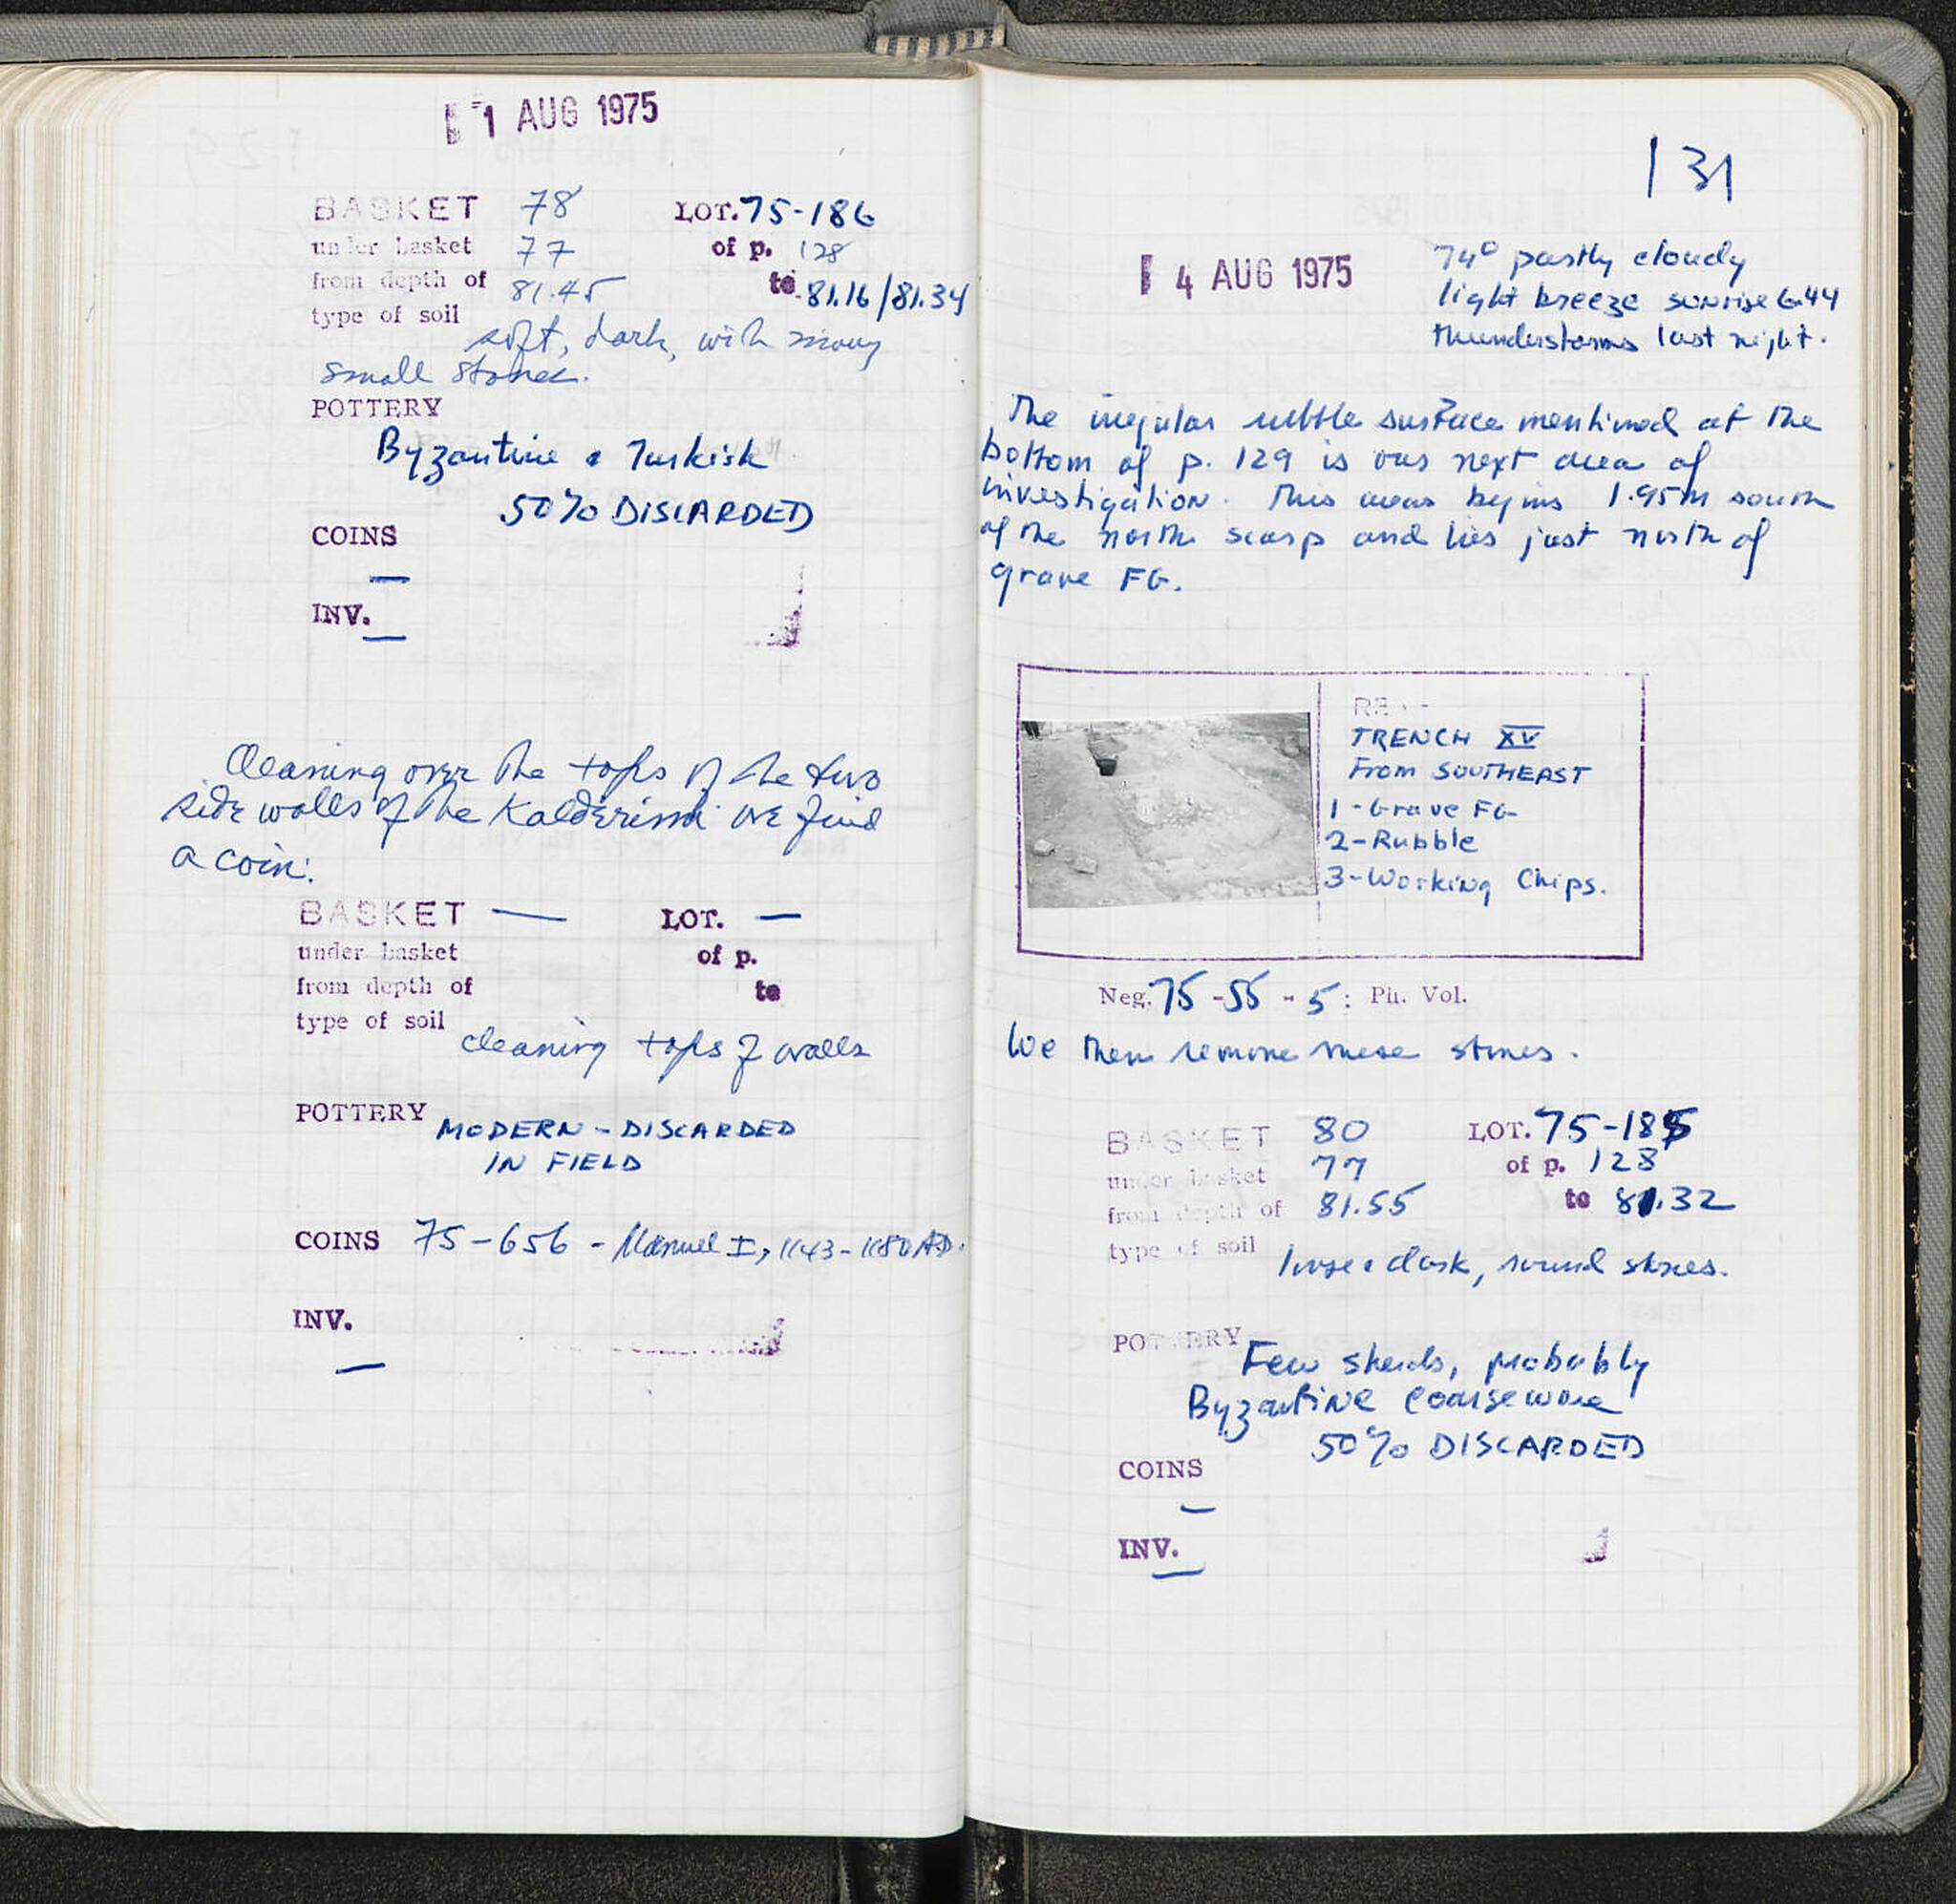 1 AUG 1975
BASKET 78 LOT. 75-186
under basket 77 of p. 128
from depth of 81.45 to 81.16/81.34
type of soil soft, dark, with many
small stones.
POTTERY
Byzantine & Turkish
50% DISCARDED
COINS
—
INV. —
Cleaning over the tops of the two
side walls of the Kalderimi we find
a coin:
BASKET — LOT. —
under basket of p.
from depth of to
type of soil cleaning tops of walls
POTTERY MODERN - DISCARDED
IN FIELD
COINS 75-656 - Manuel I, 1143-1180 AD.
INV.
—
131
4 AUG 1975
74° partly cloudy
light breeze sunrise 6.44
thunderstorms last night.
The irregular rubble surface mentioned at the
bottom of p. 129 is our next area of
investigation. This area begins 1.95m south
of the north scarp and lies just north of
grave FG.
TRENCH XV
From SOUTHEAST
1-Grave FG
2-Rubble
3-Working Chips.
Neg. 75-55-5: Ph. Vol.
We then remove these stones.
BASKET 80 LOT. 75-185
under basket 77 of p. 128
from depth of 81.55 to 81.32
type of soil loose & dark, round stones.
POTTERY Few sherds, probably
Byzantine coarseware
50% DISCARDED
COINS
—
INV.
—